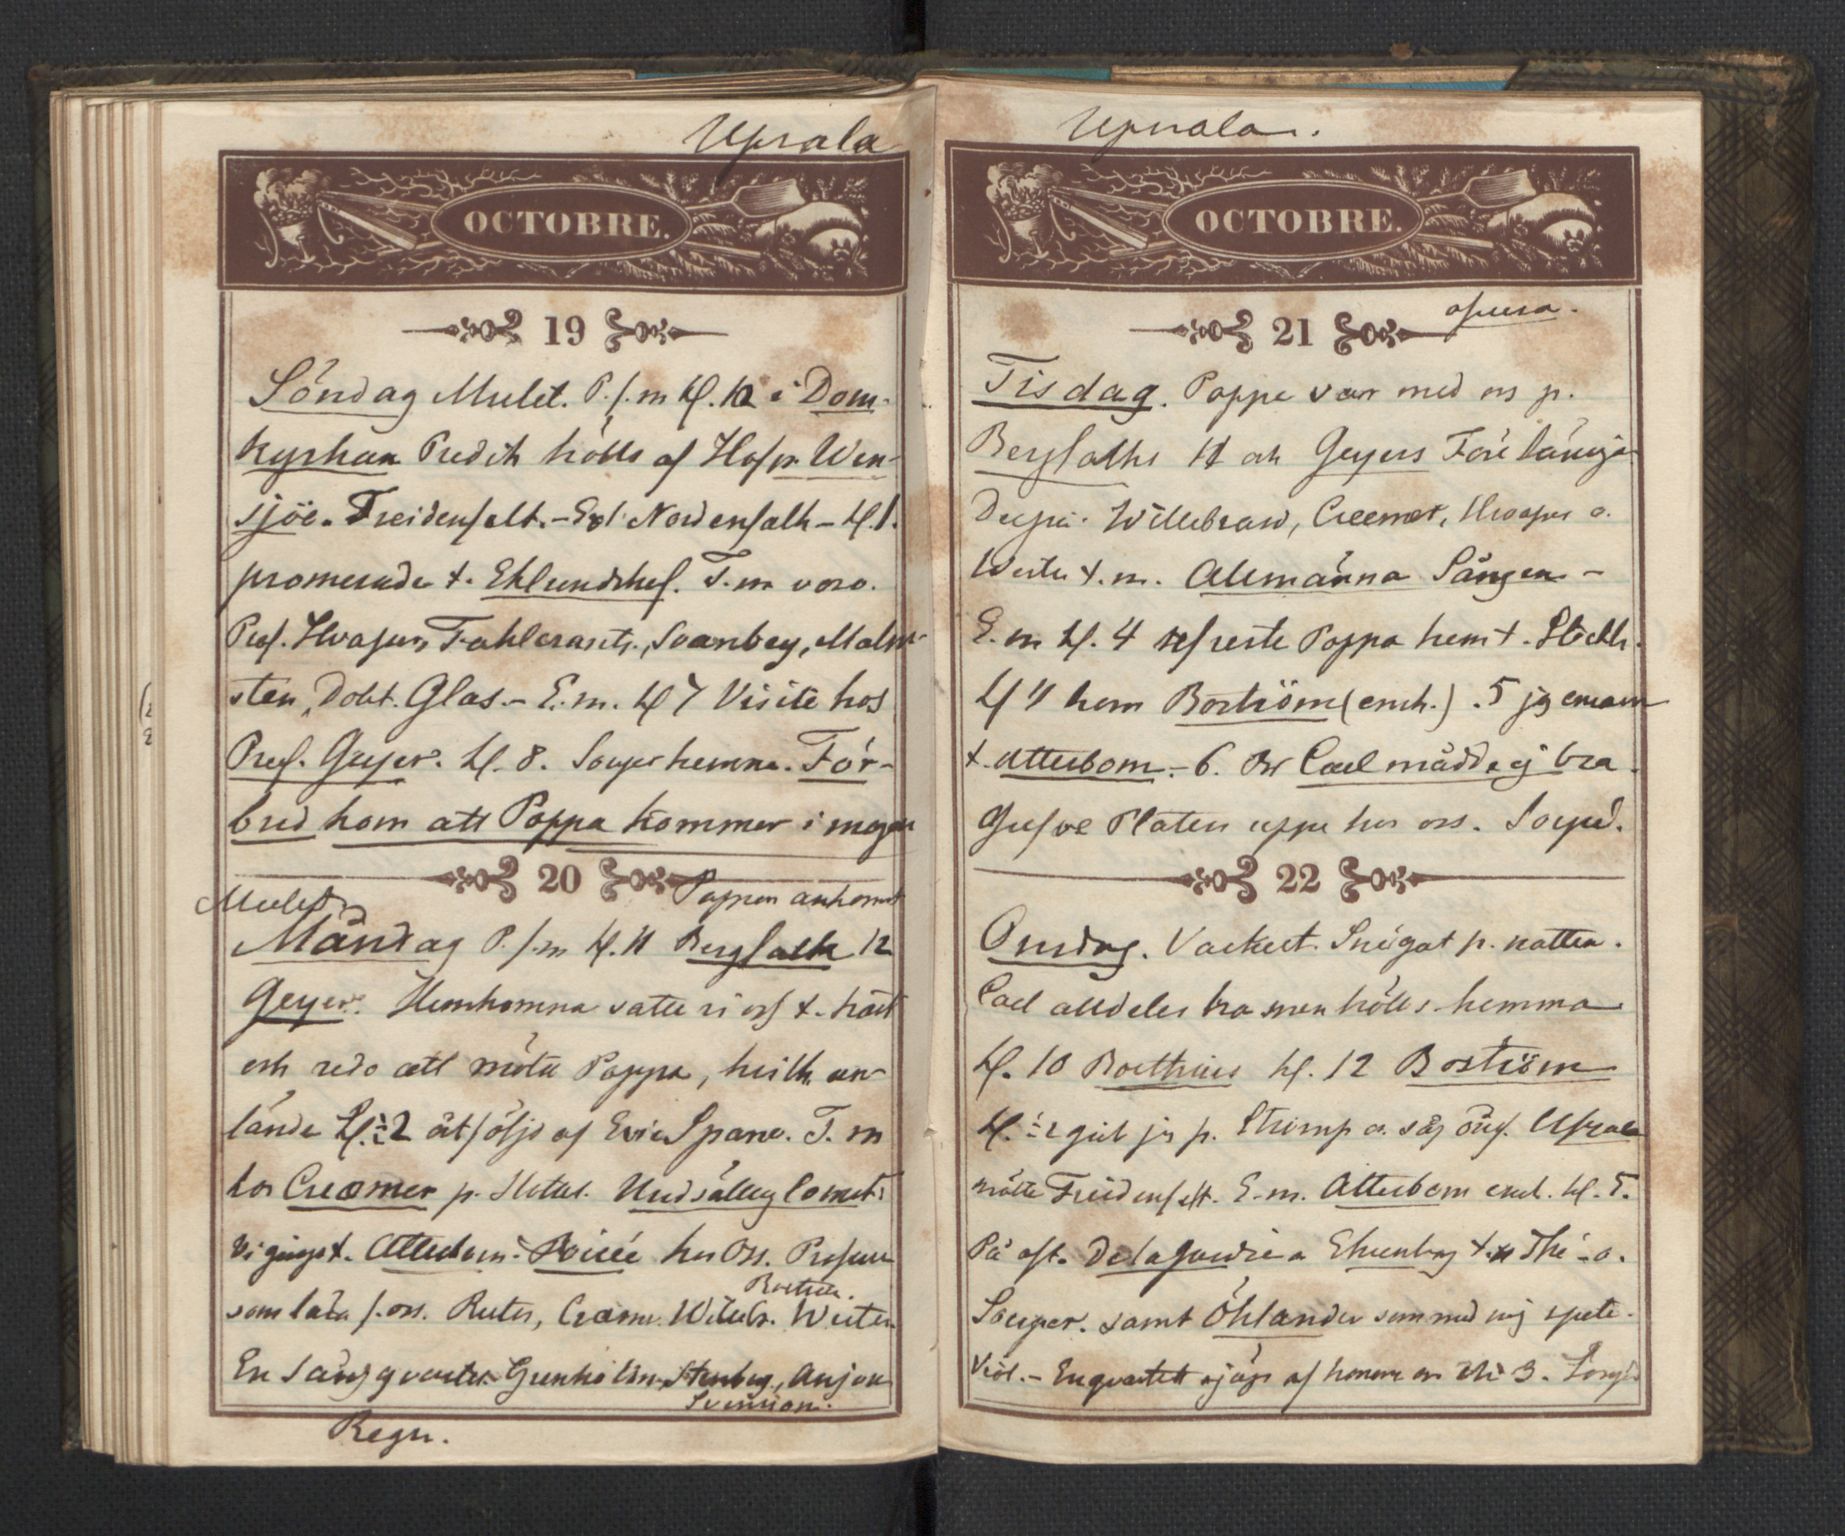 Upsala
OCTOBRE.
19
Söndag Mulet. P. f.m kl. 10 i Dom-
kyrkan Predik hölls af Hofpr Win-
sjöe. Freidenfelt. - Nordenfalk - kl. 1.
promenade t. Eklundshof. T. m voro.
Prof. Hvasser, Fahlcrantz, Svanberg, Malm-
sten, Dokt. Glas. - E. m. kl 7 Visite hos
Prof. Geijer. kl. 8. Souper hemma. För-
bud kom att Pappa kommer i morgon
20
Pappas ankomst
Mulet
Måndag P. f.m kl. 11 Bergfalk 12
Geyer. Hemkomna satte vi oss t. rätt
och redo att möta Pappa, hvilk. an-
lände kl. ½2 åtföljd af Eric Sparre. T. m
hos Creæmer p. Slottet.
Vi gingo t. Atterbom. Soirée hos Oss. Professorer
Boethius.
som läsa f. oss. Reuter, Creæmer. Willebr. Wester
En Sångqvartett Grenholm, Stenberg, Anjou
Svenson.
Regn.
Upsala.
OCTOBRE.
21
opera.
Tisdag. Pappa var med oss p.
Bergfalks 11 och Geyers Föreläsningar
Willebrand, Creemer, Hvasser o.
Wester t. m. Allmänna Sången -
E. m kl. 4 afreste Pappa hem t. Stockh.
kl 4 kom Boström (ensk.) . 5 jg ensam
t. Atterbom. - 6. Br Carl mådde ej bra.
Gust von Platen uppe hos oss. Soup.
22
Onsdag. Vackert. Snögat p. natten.
Carl alldeles bra men hölls hemma
kl. 10 Boethius kl. 12 Boström
kl. ½2 gick jg p. Ströpp o. såg Upsala
mötte Freidenfelt. E. m. Atterbom ensk. kl. 5.
På aft. Delagardie o Ehrenborg t. Thé - o.
Souper. samt Öhlander som med mig spelte
Viol. - En qvartett af honom Nr 3.